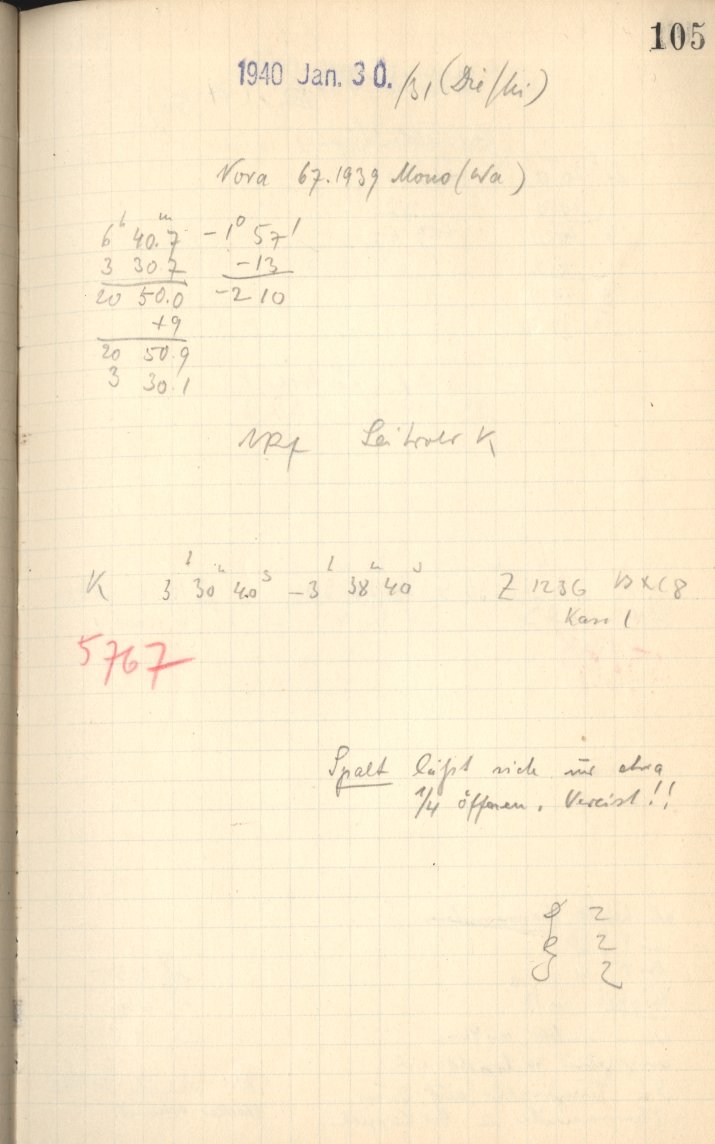 105
1940 Jan. 30. /31 (Die/Mi)
Nova 67.1939 Mono (Wa)
6ʰ 40.7ᵐ -1° 57'
3 30 7 -13
20 50.0 -2 10
+9
20 50.9
3 30.1
K
K 3ʰ 30ᵐ 40ˢ -3ʰ 38ᵐ 40ˢ Z 1236
Kass 1
5767
Spalt läßt sich nur etwa
1/4 öffnen. Vereist!!
2
2
2